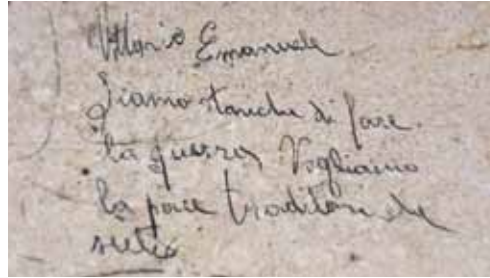 Vittorio Emanuele
siamo stanchi di fare
la guerra Vogliamo
la pace traditori che
siete